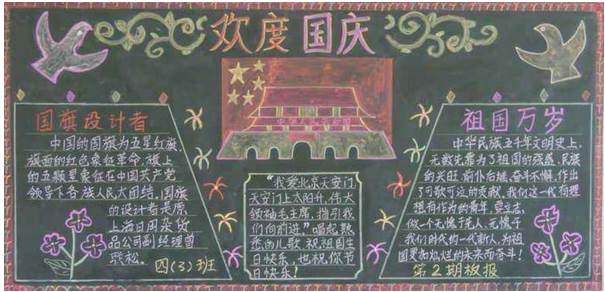 欢度国庆
国旗设计者
中国的国旗为五星红旗
旗面的红色象征革命,旗上
的五颗星象征在中国共产党
领导下各族人民大团结,国旗
的设计者是原
上海日用杂货
品公司副经理曾
联松。
四(3)班
"我爱北京天安门
天安门上太阳升,伟大
领袖毛主席,指引我
们向前进"唱起熟
悉的儿歌,祝祖国生
日快乐,也祝你节
日快乐!
祖国万岁
中华民族五千年文明史上,
无数先辈为了祖国的强盛、民族
的兴旺,前仆后继,奋斗不懈,作出
了可歌可泣的贡献,我们这一代有理
想有作为的青年,要立志,
做一个无愧于先人,无愧于
我们时代的一代新人,为祖
国更加灿烂的未来而奋斗!
第2期板报